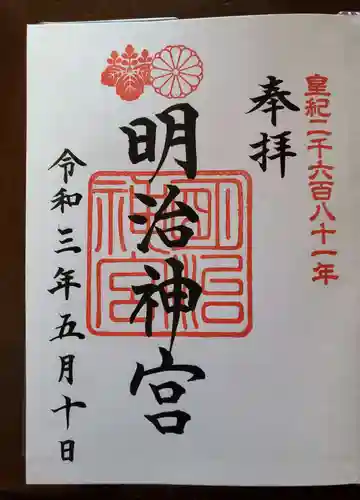 皇紀二千六百八十一年
奉拝
明治神宮
明治神宮
令和三年五月十日